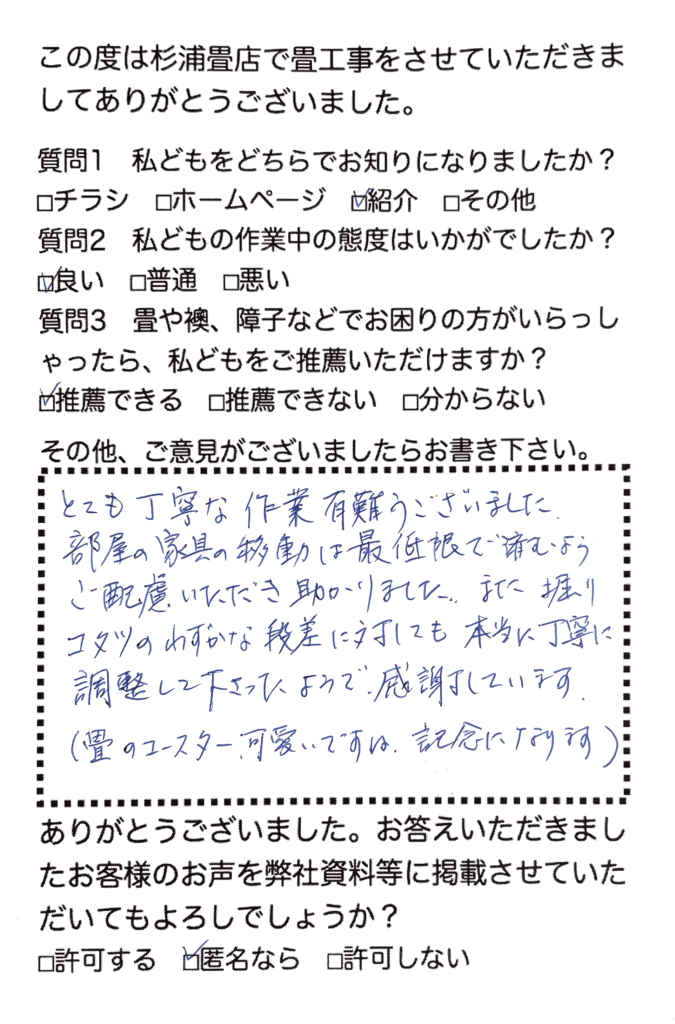 この度は杉浦畳店で畳工事をさせていただきま
してありがとうございました。
質問1　私どもをどちらでお知りになりましたか？
□チラシ　□ホームページ　☑紹介　□その他
質問2　私どもの作業中の態度はいかがでしたか？
☑良い　□普通　□悪い
質問3　畳や襖、障子などでお困りの方がいらっし
ゃったら、私どもをご推薦いただけますか？
☑推薦できる　□推薦できない　□分からない
その他、ご意見がございましたらお書き下さい。
とても丁寧な作業有難うございました.
部屋の家具の移動は最低限で済むよう
ご配慮いただき助かりました. また 掘り
コタツのわずかな段差に対しても 本当に丁寧に
調整して下さったようで.感謝しています.
(畳のコースター.可愛いですね. 記念になります)
ありがとうございました。お答えいただきまし
たお客様のお声を弊社資料等に掲載させていた
だいてもよろしでしょうか？
□許可する　☑匿名なら　□許可しない